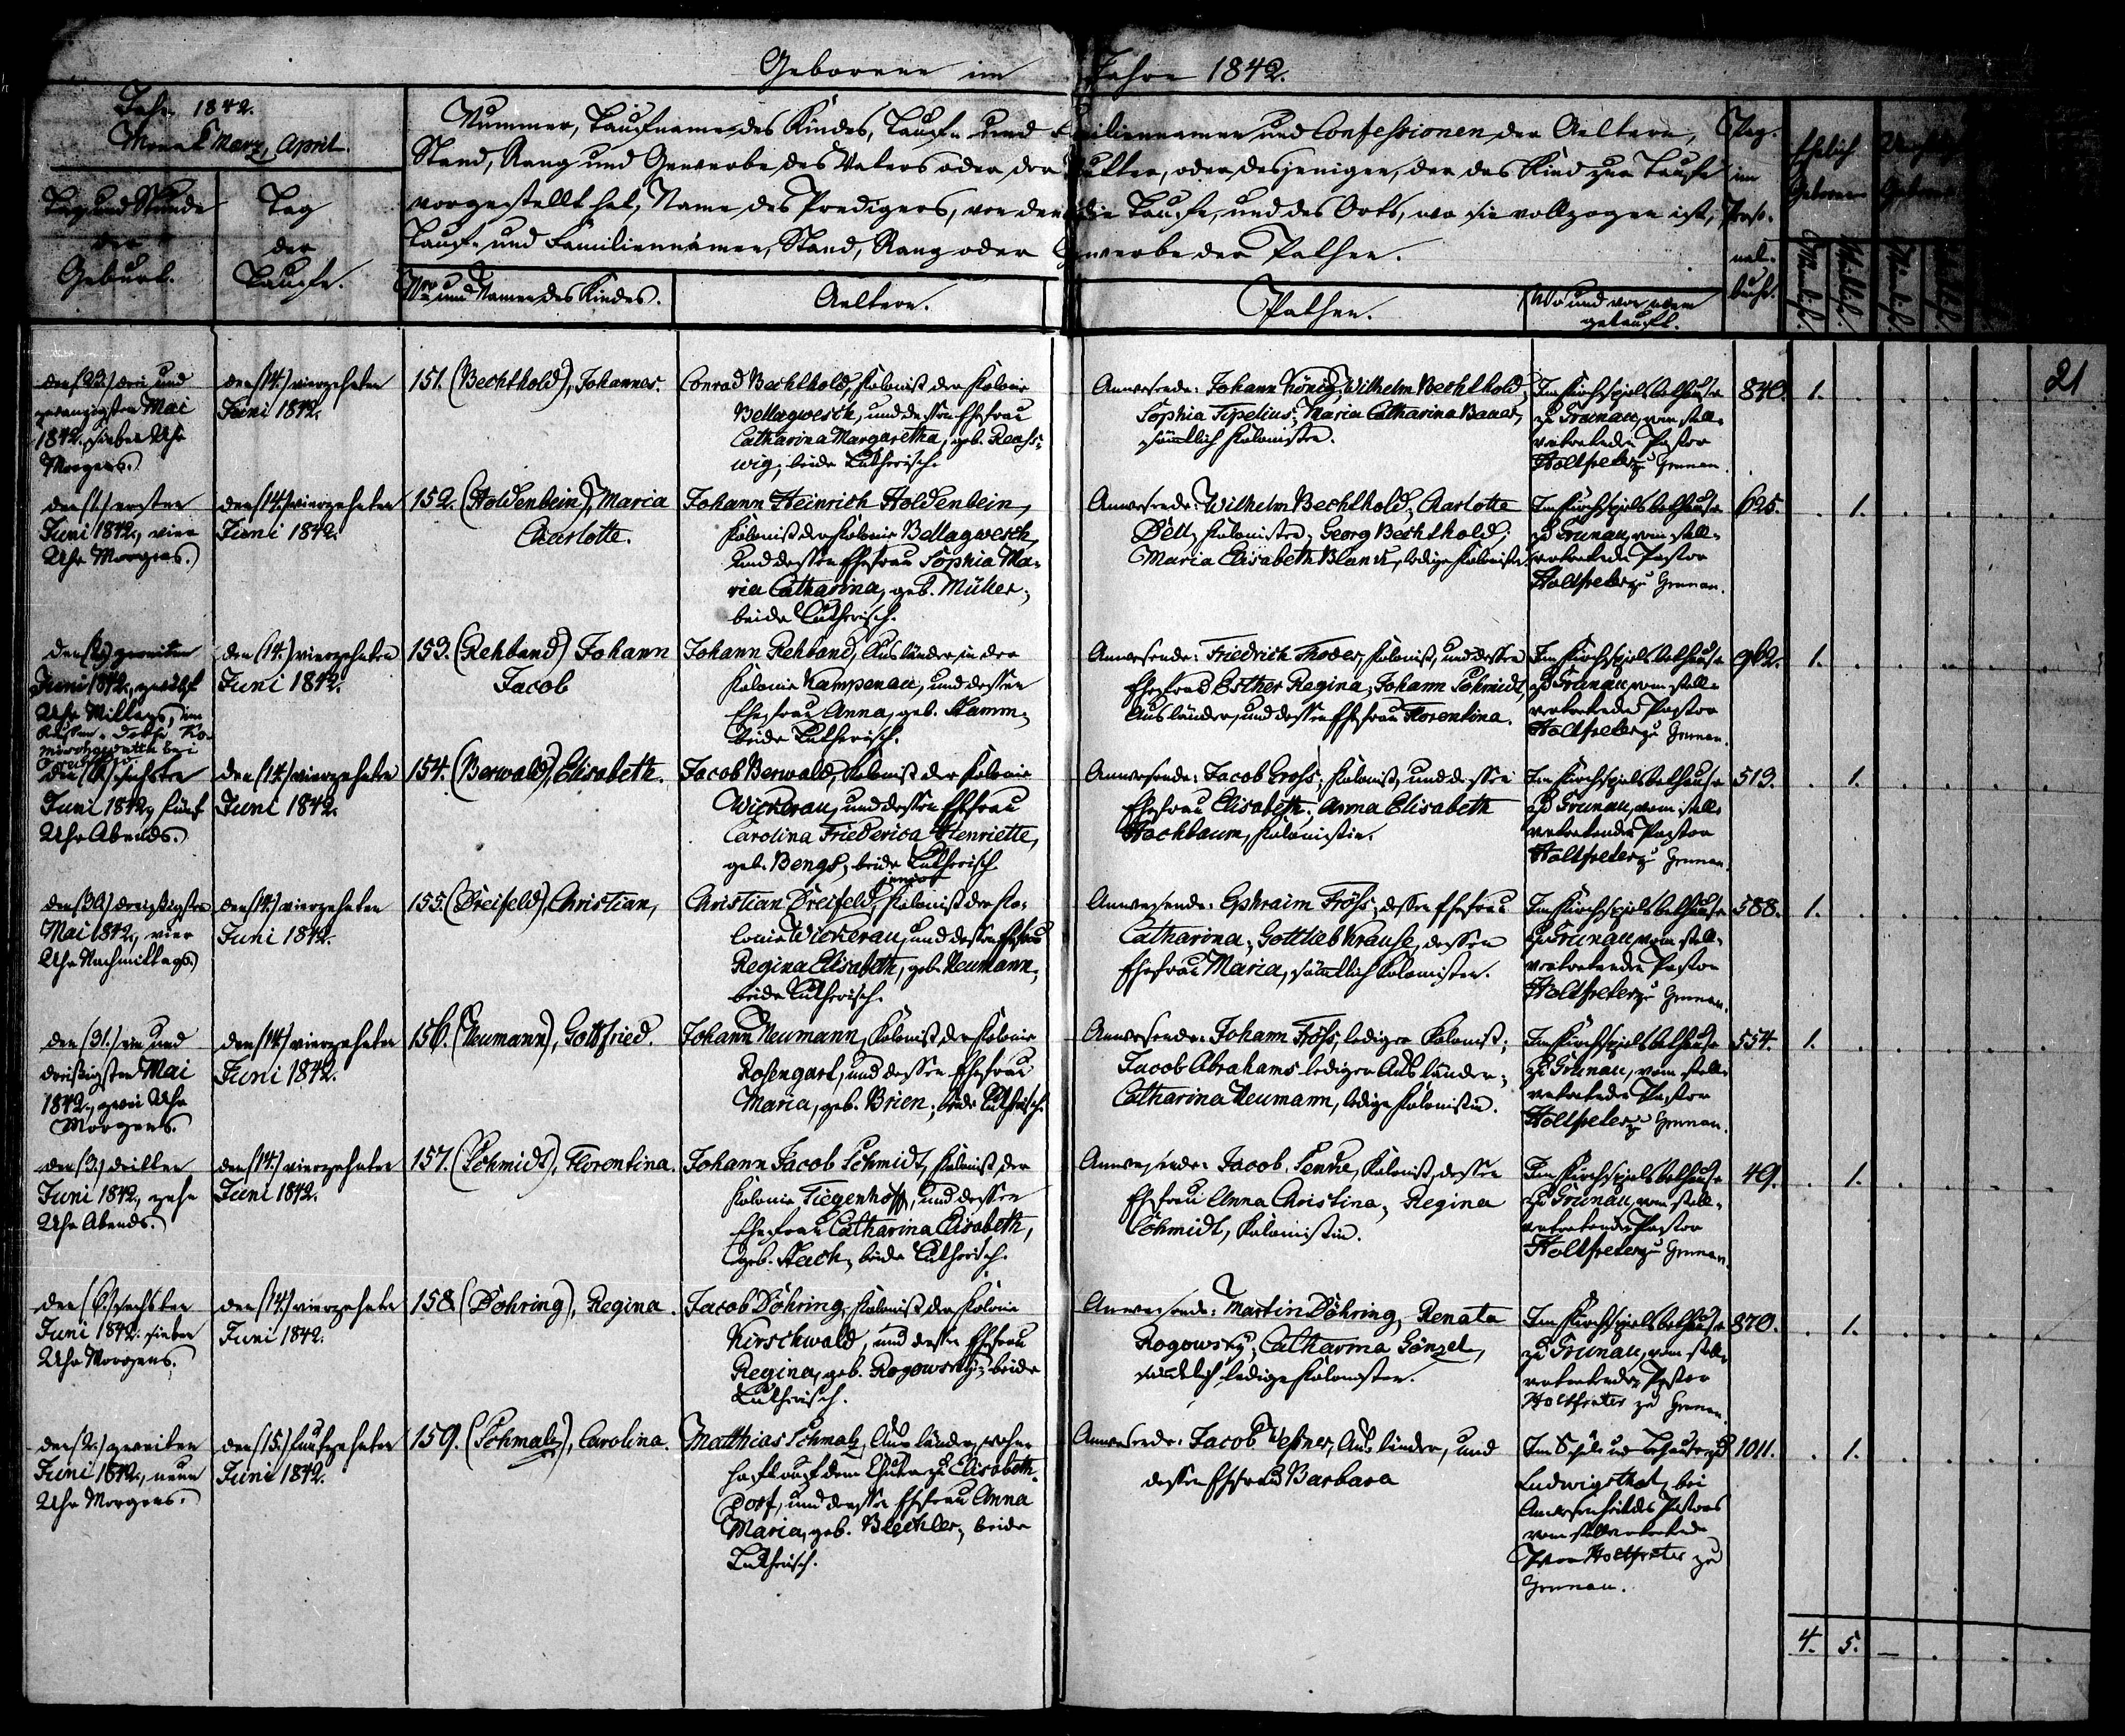 Geborene im Jahre 1842.
Jahr 1842.
Monat Marz, April.
Tag und Stunde
der
Geburt.
Tag
der
Taufe.
Nummer, Taufname des Kindes, Tauf- und Familiennamen und Confessionen der Aeltern,
Stand, Rang und Gewerbe des Vaters oder der Mutter, oder desjenigen, der das Kind zur Taufe
vorgestellt hat, Name des Predigers, von dem die Taufe, und des Orts, wo sie vollzogen ist,
Tauf- und Familiennamen, Stand, Rang oder Gewerbe der Pathen.
Nro und Namen des Kindes.
Aeltern.
Pathen.
Wo und von wem
getauft.
Pag.
im
Perso-
nal-
buch.
Ehelich
Geborene
Männlich.
Weiblich.
21
den (23.) drei und
zwanzigsten Mai
1842. sieben Uhr
Morgens.
den (14.) vierzehnten
Juni 1842.
151. (Bechthold), Johannes
Conrad Bechthold, Kolonist der Kolonie
Bellagwesch, und dessen Ehefrau
Catharina Margaretha, geb.
wig; beide Lutherisch.
Anwesende: Johann König; Wilhelm Bechthold,
Sophia Sipelius; Maria Catharina Bauer,
sämtlich Kolonisten.
Im Kirchspielsbethause
zu Grunau, vom stell-
vertretenden Pastor
Holtfreter zu Grunau.
840. 1.
den (1.) ersten
Juni 1842., vier
Uhr Morgens.
den (14.) vierzehnten
Juni 1842.
152. (Holdenbein), Maria
Charlotte.
Johann Heinrich Holdenbein,
Kolonist der Kolonie Bellagwesch,
und dessen Ehefrau Sophia Ma-
ria Catharina, geb. Müller;
beide Lutherisch.
Anwesende: Wilhelm Bechthold; Charlotte
Dell, Kolonisten; Georg Bechthold;
Maria Elisabeth Blank, ledige Kolonisten.
Im Kirchspielsbethause
zu Grunau, vom stell-
vertretenden Pastor
Holtfreter zu Grunau.
625. 1.
den (2.) zweiten
Juni 1842., zwölf
Uhr Mittags, im
den (14.) vierzehnten
Juni 1842.
153. (Rehband) Johann
Jacob
Johann Rehband, Ausländer in der
Kolonie Kampenau, und dessen
Ehefrau Anna, geb. Stamm;
beide Lutherisch.
Anwesende: Friedrich Thoder, Kolonist, und dessen
Ehefrau Esther Regina; Johann Schmidt,
Ausländer, und dessen Ehefrau Florentina.
Im Kirchspielsbethause
zu Grunau, vom stell-
vertretenden Pastor
Holtfreter zu Grunau.
962. 1.
den (6.) sechsten
Juni 1842., fünf
Uhr Abends.
den (14.) vierzehnten
Juni 1842.
154. (Berwald), Elisabeth.
Jacob Berwald, Kolonist der Kolonie
Wickerau, und dessen Ehefrau
Carolina Friederica Henriette,
geb. Bengs; beide Lutherisch
Anwesende: Jacob Gross, Kolonist, und dessen
Ehefrau Elisabeth; Anna Elisabeth
Hachbaum, Kolonistin.
Im Kirchspielsbethause
zu Grunau, vom stell-
vertretenden Pastor
Holtfreter zu Grunau.
513. 1.
den (30.) dreissigsten
Mai 1842., vier
Uhr Nachmittags.
den (14.) vierzehnten
Juni 1842.
155. (Dreifeld), Christian,
junior
Christian Dreifeld, Kolonist der Ko-
lonie Wickerau, und dessen Ehefrau
Regina Elisabeth, geb. Neumann;
beide Lutherisch.
Anwesende: Ephraim Fröhs, dessen Ehefrau
Catharina; Gottlieb Krause, dessen
Ehefrau Maria, sämtlich Kolonisten.
Im Kirchspielsbethause
zu Grunau, vom stell-
vertretenden Pastor
Holtfreter zu Grunau.
588. 1.
den (31.) ein und
dreissigsten Mai
1842., zwei Uhr
Morgens.
den (14.) vierzehnten
Juni 1842.
156. (Neumann), Gottfried.
Johann Neumann, Kolonist der Kolonie
Rosengart, und dessen Ehefrau
Maria, geb. Brien; beide Lutherisch.
Anwesende: Johann Fröhs, lediger Kolonist;
Jacob Abrahams lediger Ausländer;
Catharina Neumann, ledige Kolonistin.
Im Kirchspielsbethause
zu Grunau, vom stell-
vertretenden Pastor
Holtfreter zu Grunau.
554. 1.
den (3.) dritten
Juni 1842., zehn
Uhr Abends.
den (14.) vierzehnten
Juni 1842.
157. (Schmidt), Florentina.
Johann Jacob Schmidt, Kolonist der
Kolonie Tiegenhoff, und dessen
Ehefrau Catharina Elisabeth,
geb. Stach; beide Lutherisch.
Anwesende: Jacob Penke, Kolonist, dessen
Ehefrau Anna Christina; Regina
Schmidt, Kolonistin.
Im Kirchspielsbethause
zu Grunau, vom stell-
vertretenden Pastor
Holtfreter zu Grunau.
49. 1.
den (6.) sechsten
Juni 1842. sieben
Uhr Morgens.
den (14.) vierzehnten
Juni 1842.
158. (Döhring), Regina.
Jacob Döhring, Kolonist der Kolonie
Kirschwald, und dessen Ehefrau
Regina, geb. Rogowsky; beide
Lutherisch.
Anwesende: Martin Döhring, Renata
Rogowsky; Catharina Gönzel,
sämtlich ledige Kolonisten.
Im Kirchspielsbethause
zu Grunau, vom stell-
vertretenden Pastor
Holtfreter zu Grunau.
870. 1.
den (2.) zweiten
Juni 1842., neun
Uhr Morgens.
den (15.) funfzehnten
Juni 1842.
159. (Schmalz), Carolina.
Matthias Schmalz, Ausländer, wohn-
haft auf dem Chutor zu Elisabeth-
Dorf, und dessen Ehefrau Anna
Maria, geb. Blechler; beide
Lutherisch.
Anwesende: Jacob Messner, Ausländer, und
dessen Ehefrau Barbara
Im Schul- und Bethause zu
Ludwigsthal, bei
Anwesenheit des Pastors
vom stellvertretenden
Pastor Holtfreter zu
Grunau.
1011. 1.
4. 5. –